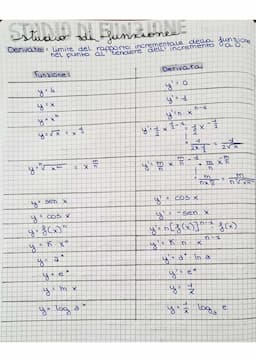 STUDIO DI FUNZIONE
studio di funzione
Derivate: limite del rapporto incrementale della funzione
nel punto al tendere dell'incremento a 0.
Funzione: Derivata:
y = k y' = 0
y = x y' = 1
y = xⁿ y' = n x^(n-1)
y = √x = x^(1/2) y' = 1/2 x^(1/2 - 1) = 1/2 x^(-1/2)
= 1/(2x^(1/2)) = 1/(2√x)
y = ⁿ√(x^m) = x^(m/n) y' = m/n x^(m/n - 1)
y = sen x y' = cos x
y = cos x y' = -sen x
y = f(x)ⁿ y' = n[f(x)]^(n-1) · f(x)
y = k xⁿ y' = k n x^(n-1)
y = aˣ y' = aˣ ln a
y = eˣ y' = eˣ
y = ln x y' = 1/x
y = log a y' = 1/x logₐ e